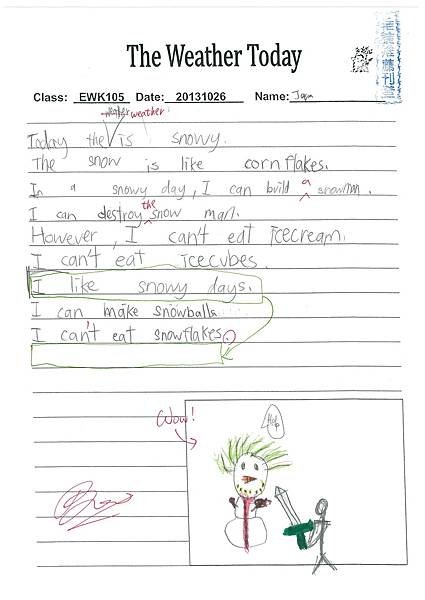 The Weather Today
Class: EWK105 Date: 20131026 Name:
weather
Today the is snowy.
The snow is like cornflakes.
In a snowy day, I can build a snowmn.
the
I can destroy snow man.
However, I can't eat icecream.
I can't eat icecubes.
I like snowy days.
I can make snowballs
I can't eat snowflakes.
Wow!
Help